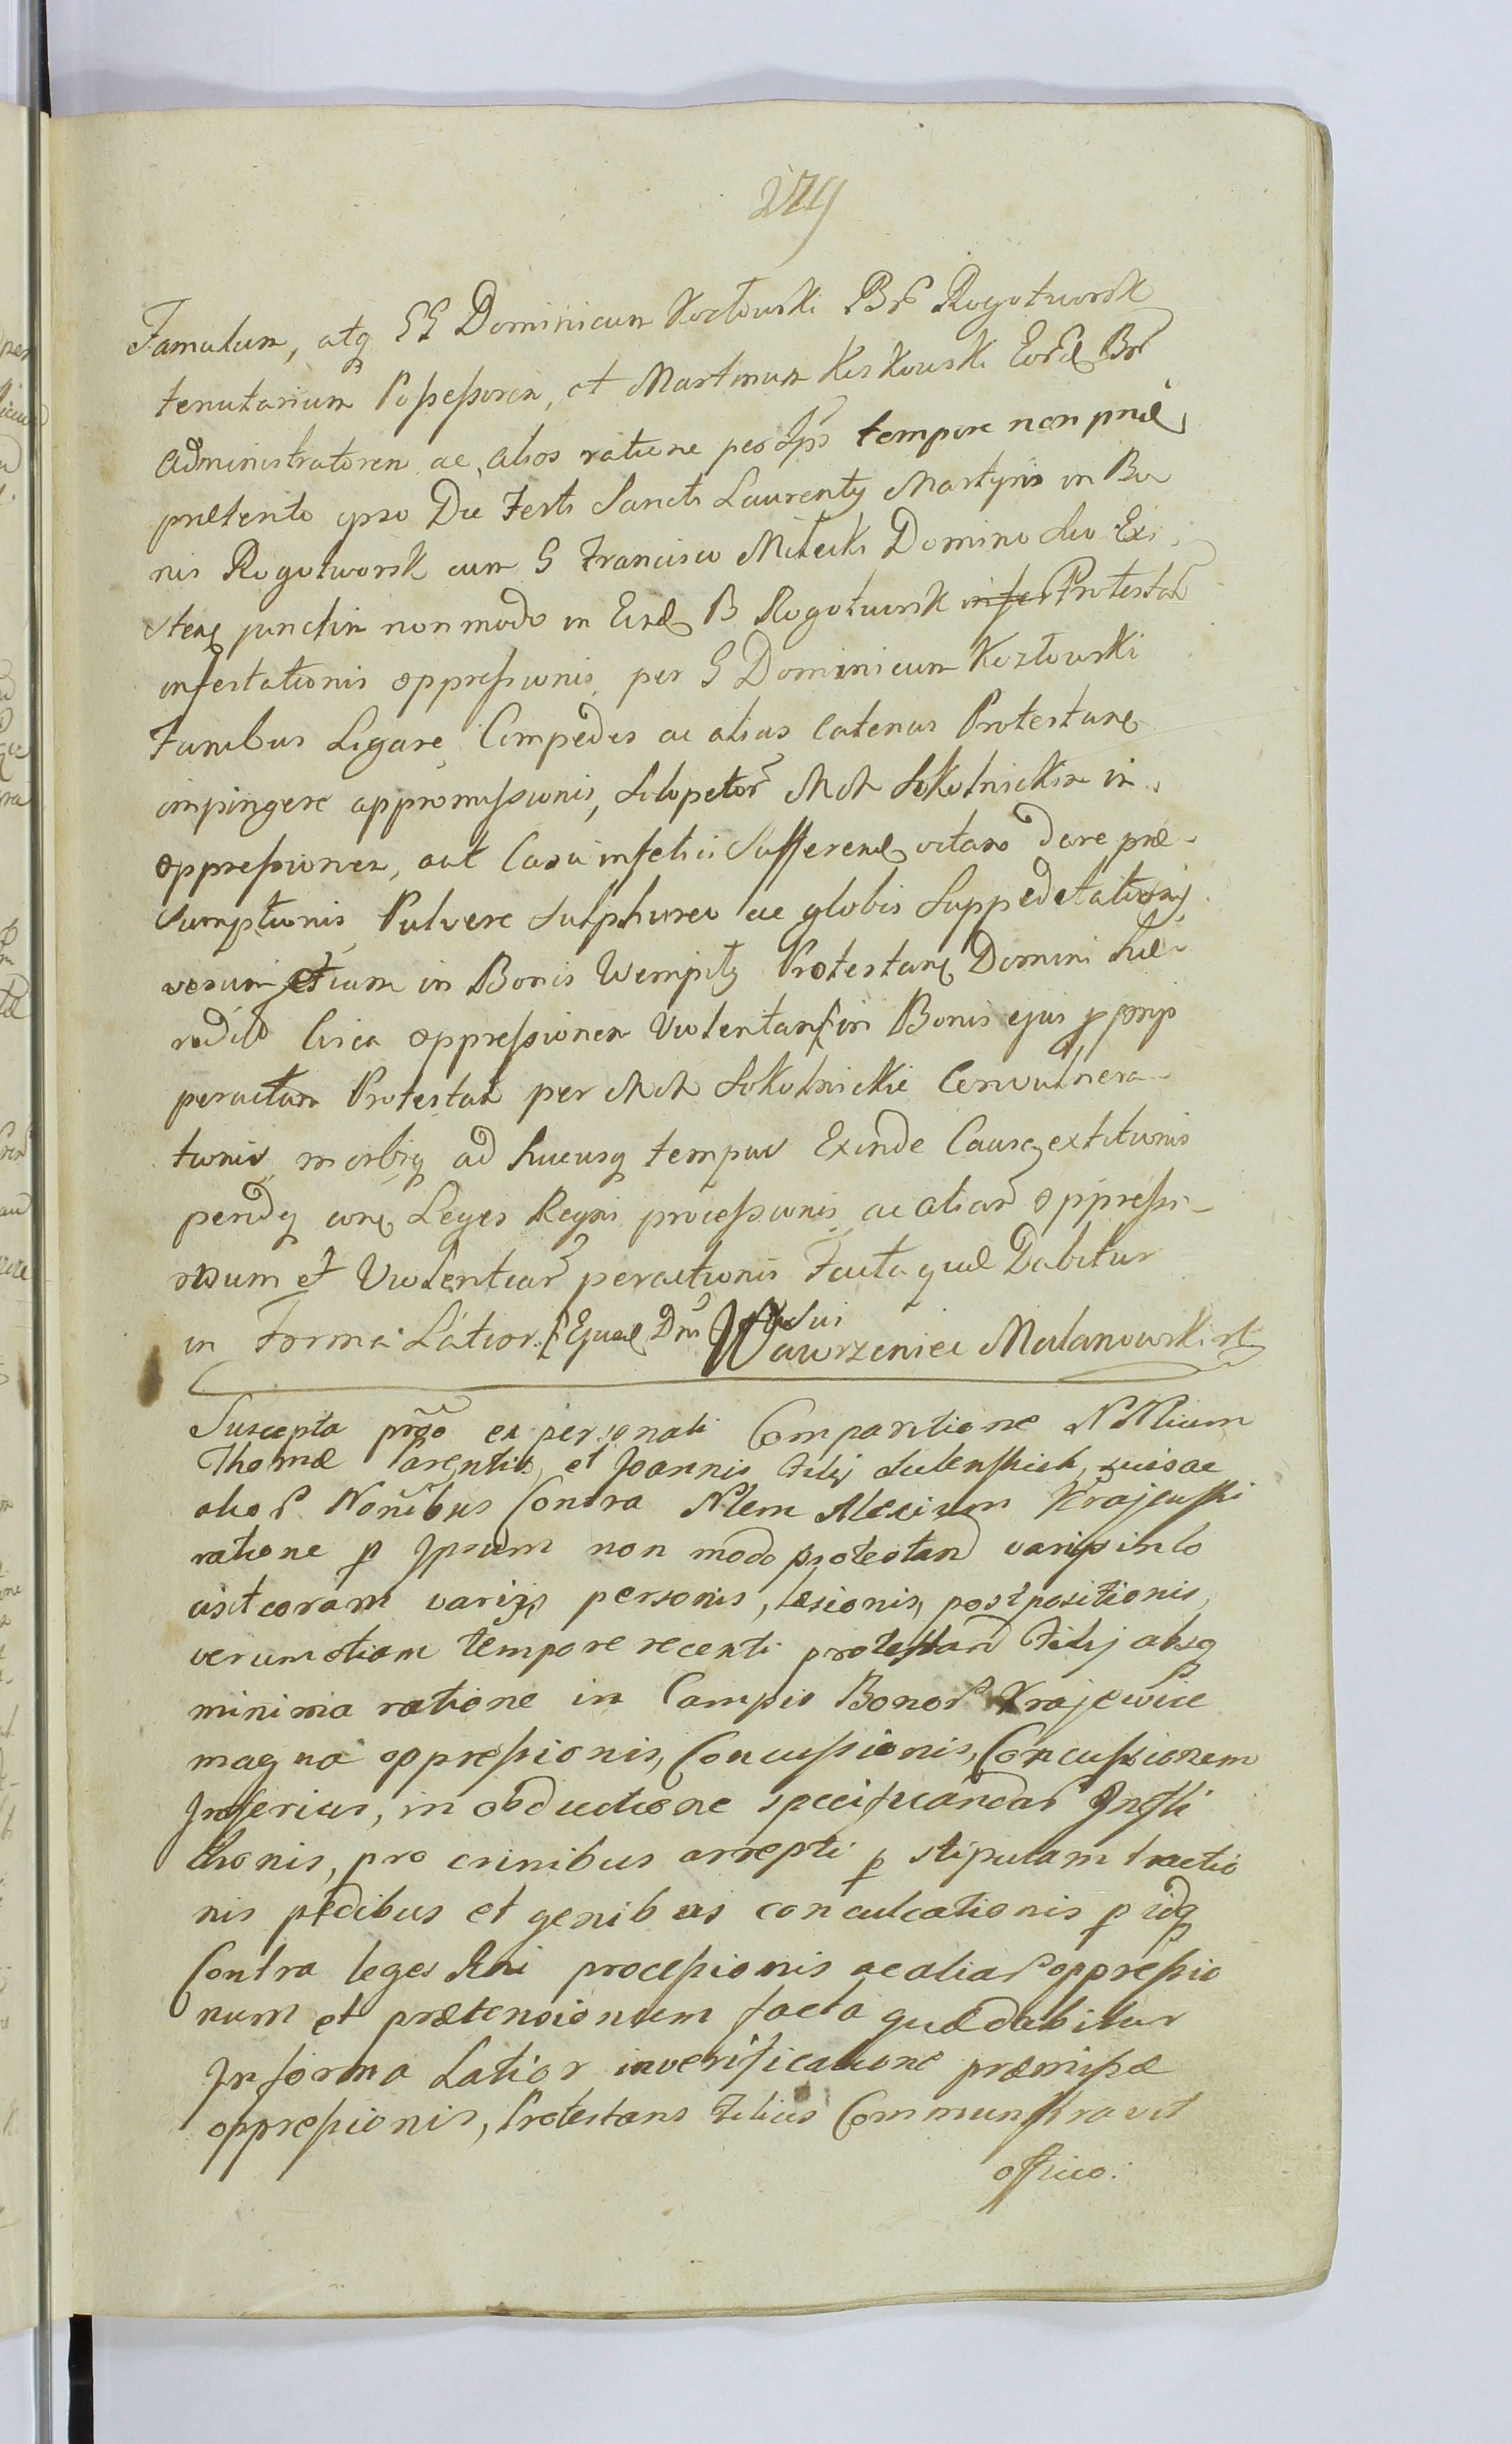 279
Famulum, atq GG Dominicum Kozłowski Br Rogotworsk
tenutarium Possessorem, et Martinum Kiskowski Eord Br
Administratorem ac alios ratione per Ips tempore non prid
præterito ipso Die Festi Sancti Laurentij Martyris in Bo
nis Rogotworsk cum G Francisco Miłecki Domino suo Exi
sten junctim non modo in Eisd B Rogotworsk Protestan
infestationis oppressionis per G Dominicum Kozłowski
Funibus Ligare Compedes ac alias Catenas Protestan
impingere appromissionis, Sclopetor MM Sokolnickim in
oppressionem, aut Casu infelici Sufferend vitam dare præ-
sumptionis Pulvere Sulphureo ac globis Suppeditationis
verum etiam in Bonis Wempiły Protestan Domini hæ-
redit Circa oppressionem Violentam in Bonis ejus p
peractam Protestan per MM Sokolnickie Convulnera-
tionis morbiq ad hucusq tempus Exinde Causa extitionis
pend con Leges Regni processionis ac aliar oppressi-
onum et Violentiar peractionis Facta quæ Dabitur
in Forma Latior. Dni sui
Wawrzeniec Malanowski
Suscepta prõo ex personali Comparitione NNlium
Thomæ Parentis, et Joannis Filij suis ac
alior Noñibus Contra Nlem Alexium Krajewski
ratione p Ipsum non modo protestan varijs in lo
cis et coram varijs personis, læsionis, postpositionis,
verum etiam tempore recenti protestan Filij absq
minima ratione in Campis Bonor Krajewice
magna oppressionis, Concussionis, Concussionem
Inferius, in obductione specificandar Infli
ctionis, pro crinibus arrepti p stipulam tractio
nis pedibus et genibus conculcationis p idq
Contra leges Rni processionis ac aliar oppressio
num et prætensionum facta quæ dabitur
In forma Latior in verificatione præmissæ
oppressionis, Protestans Filius Commonstravit
officio.